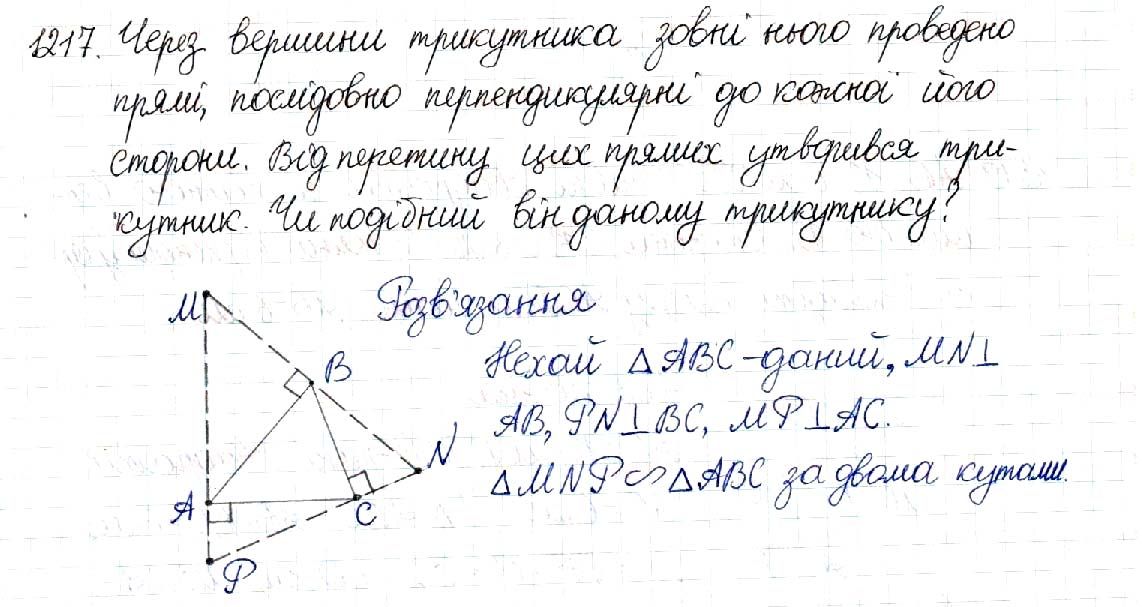 1217. Через вершини трикутника зовні нього проведено
прямі, послідовно перпендикулярні до кожної його
сторони. Від перетину цих прямих утворився три-
кутник. Чи подібний він даному трикутнику?
Розв'язання
Нехай △ABC-даний, MN⊥
AB, PN⊥BC, MP⊥AC.
△MNP∽△ABC за двома кутами.
M
B
N
A
C
P